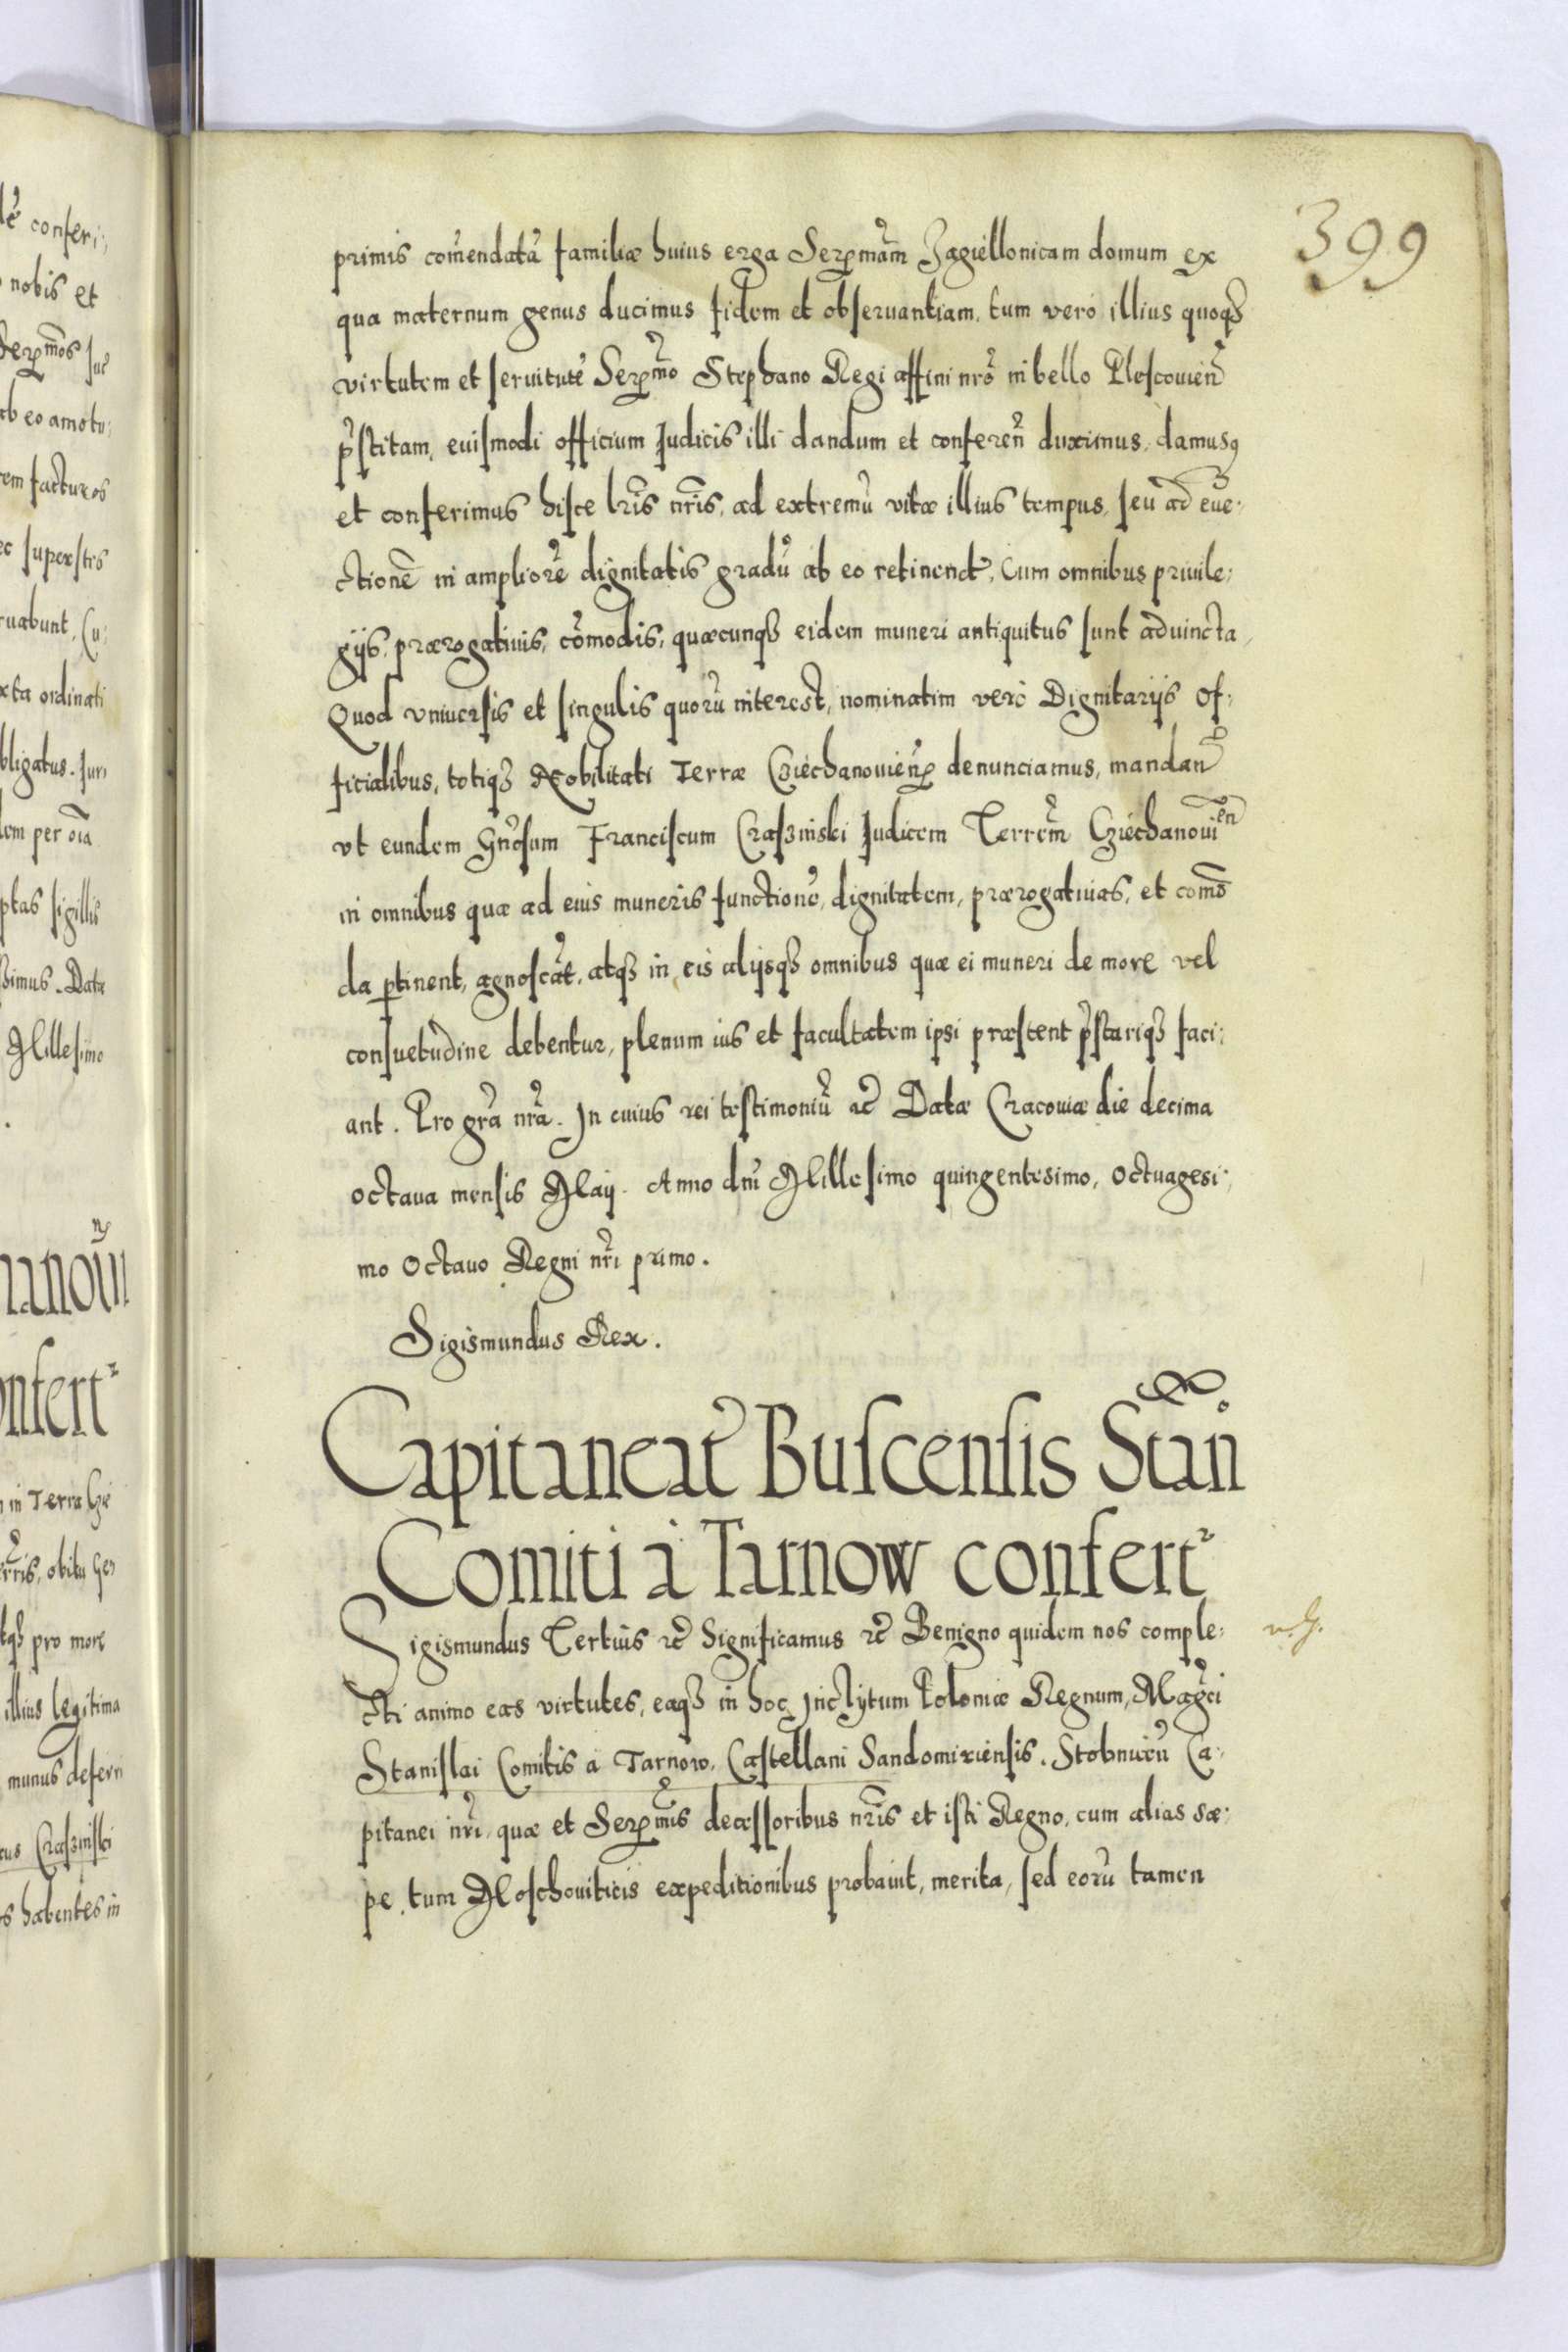 399
primis com̃endatã familiæ huius erga Serẽmam Jagiellonicam domum ex
qua maternum genus ducimus fidem et obseruantiam, tum vero illius quoq3
virtutem et seruitutẽ Serẽmo Stephano Regi affini nrõ in bello Plescouieñ
p̃stitam, euismodi officium Judicis illi dandum et confereñ duximus, damusq
et conferimus hisce lr̃is nr̃is, ad extremũ vitæ illius tempus, seu ad eue:
ctionẽ in ampliorẽ dignitatis gradũ ab eo retinend, Cum omnibus priuile:
gijs, prærogatiuis, com̃odis, quæcunq3 eidem muneri antiquitus sunt aduincta,
Quod vniuersis et singulis quorũ interest, nominatim vero Dignitarijs Of:
ficialibus, totiq3 Nobilitati Terræ Cziechanouieñ denunciamus, mandañ
vt eundem Gñosum Franciscum Craszinski Judicem Terrẽm Cziechanouień
in omnibus quæ ad eius muneris functionẽ, dignitatem, prærogatiuas, et comõ
da ptinent, agnoscãt, atq3 in eis alijsq3 omnibus quæ ei muneri de more vel
consuetudine debentur, plenum ius et facultatem ipsi præstent p̃stariq3 faci:
ant. Pro gr̃a nr̃a. In cuius rei testimoniũ ꝛc̃ Datæ Cracouiæ die decima
octaua mensis Maij. Anno dnĩ Millesimo quingentesimo, octuagesi:
mo Octauo Regni nr̃i primo.
Sigismundus Rex.
Capitaneat̃ Buscensis Stañ
Comiti à Tarnow confert²
Sigismundus Tertius ꝛc̃ Significamus ꝛc̃ Benigno quidem nos comple:
cti animo eas virtutes, eaq3 in hoc Jnclytum Poloniæ Regnum, Magc̃i
Stanislai Comitis a Tarnow, Castellani Sandomiriensis, Stobnicẽñ Ca:
pitanei nr̃i, quæ et Serẽmis decessoribus nr̃is et isti Regno, cum alias sæ:
pe, tum Moschouiticis expeditionibus probauit, merita, sed eorũ tamen